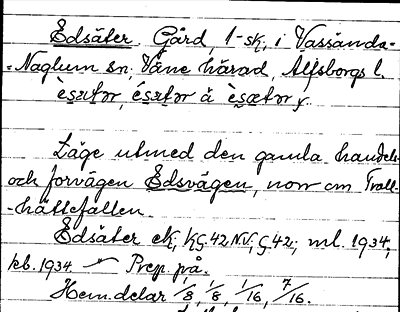 Edsäter. Gård, 1-sk, i Vassända-
-Naglum sn, Väne härad, Älfsborgs l.
Läge utmed den gamla handels-
och forvägen Edsvägen, norr om Troll-
-hättefallen.
Edsäter ek, kG.42 NV; G.42; ml. 1934;
kb. 1934 Prep. på.
Hem.delar 1/8, 1/8, 1/16, 7/16.